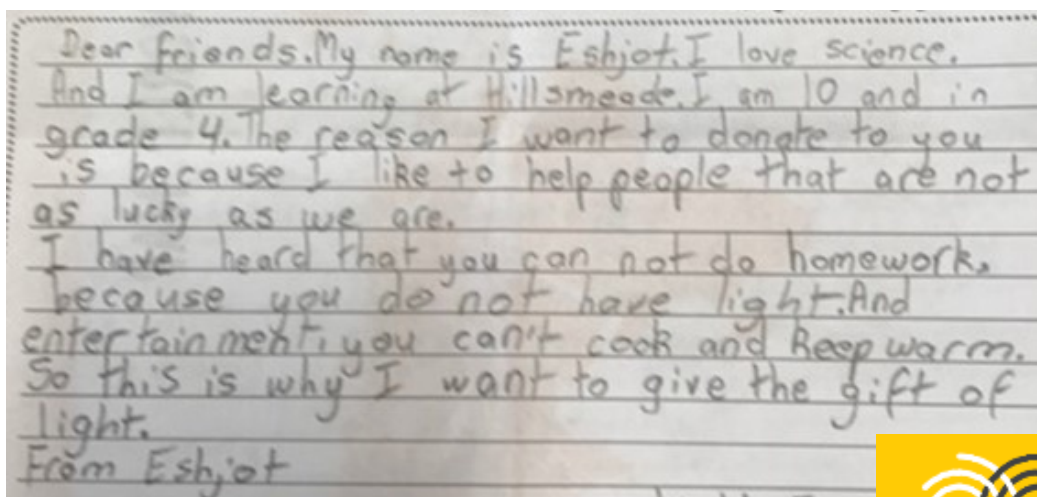 Dear friends. My name is Eshjot. I love science.
And I am learning at Hillsmeade. I am 10 and in
grade 4. The reason I want to donate to you
is because I like to help people that are not
as lucky as we are.
I have heard that you can not do homework,
because you do not have light. And
entertainment, you can't cook and keep warm.
So this is why I want to give the gift of
light.
From Eshjot